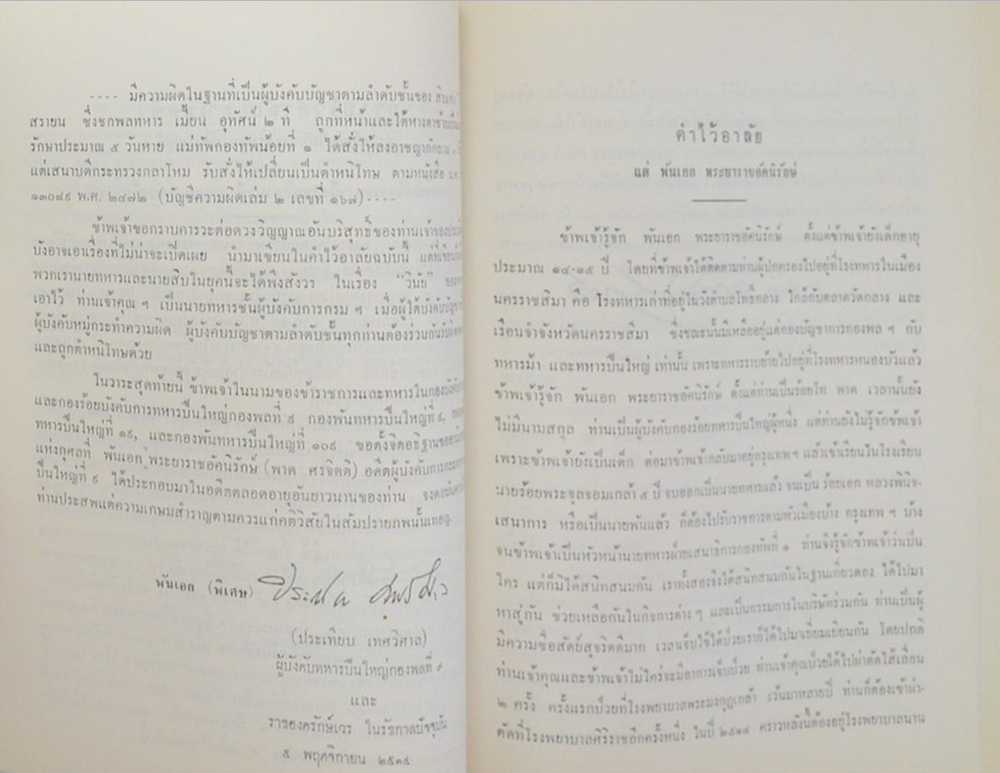 ---- มีความผิดในฐานที่เป็นผู้บังคับบัญชาตามลำดับชั้นของ
สรายน ซึ่งชกพลทหาร เมี้ยน อุทัศน์ ๒ ที ถูกที่หน้าและใต้หางตาซ้าย
รักษาประมาณ ๕ วันหาย แม่ทัพกองทัพน้อยที่ ๑ ได้สั่งให้ลงอาชญา
แต่เสนาบดีกระทรวงกลาโหม รับสั่งให้เปลี่ยนเป็นตำหนิโทษ ตามหนังสือ
๑๓๐๘๙ พ.ศ. ๒๔๗๒ (บัญชีความผิดเล่ม ๒ เลขที่ ๑๖๗)----
ข้าพเจ้าขอกราบคารวะต่อดวงวิญญาณอันบริสุทธิ์ของท่านเจ้าคุณ
บังอาจเอาเรื่องที่ไม่น่าจะเปิดเผย นำมาเขียนในคำไว้อาลัยฉบับนี้ แต่ที่เขียน
พวกเรานายทหารและนายสิบในยุคนี้จะได้พึงสังวร ในเรื่อง "วินัย"
เอาไว้ ท่านเจ้าคุณ ฯ เป็นนายทหารชั้นผู้บังคับการกรม ฯ เมื่อผู้ใต้บังคับบัญชา
ผู้บังคับหมู่กระทำความผิด ผู้บังคับบัญชาตามลำดับชั้นทุกท่านต้องร่วมกันรับผิด
และถูกตำหนิโทษด้วย
ในวาระสุดท้ายนี้ ข้าพเจ้าในนามของข้าราชการและทหารในกองบังคับการ
และกองร้อยบังคับการทหารปืนใหญ่กองพลที่ ๙ กองพันทหารปืนใหญ่ที่ ๙,
ทหารปืนใหญ่ที่ ๑๙, และกองพันทหารปืนใหญ่ที่ ๑๐๙ ขอตั้งจิตอธิฐาน
แห่งกุศลที่ พันเอก พระยาราชอัคนิรักษ์ (พาด ศรจิตติ) อดีตผู้บังคับการกรม
ปืนใหญ่ที่ ๙ ได้ประกอบมาในอดีตตลอดอายุอันยาวนานของท่าน
ท่านประสพแต่ความเกษมสำราญตามควรแก่คติวิสัยในสัมปรายภพนั้นเทอญ.
พันเอก (พิเศษ)
(ประเทียบ เทศวิศาล)
ผู้บังคับทหารปืนใหญ่กองพลที่ ๙
และ
ราชองครักษ์เวร ในรัชกาลปัจจุบัน
๕ พฤศจิกายน ๒๕๑๙
คำไว้อาลัย
แด่ พันเอก พระยาราชอัคนิรักษ์
ข้าพเจ้ารู้จัก พันเอก พระยาราชอัคนิรักษ์ ตั้งแต่ข้าพเจ้ายังเด็กอายุ
ประมาณ ๑๔-๑๕ ปี โดยที่ข้าพเจ้าได้ติดตามท่านผู้ปกครองไปอยู่ที่โรงทหารในเมือง
นครราชสิมา คือ โรงทหารเก่าที่อยู่ในวังตำบลโพธิ์กลาง ใกล้กับตลาดวัดกลาง และ
เรือนจำจังหวัดนครราชสิมา ซึ่งขณะนั้นมีเหลืออยู่แต่กองบัญชาการกองพล ฯ กับ
ทหารม้า และทหารปืนใหญ่ เท่านั้น เพราะทหารราบย้ายไปอยู่ที่โรงทหารหนองบัวแล้ว
ข้าพเจ้ารู้จัก พันเอก พระยาราชอัคนิรักษ์ ตั้งแต่ท่านเป็นร้อยโท พาด เวลานั้นยัง
ไม่มีนามสกุล ท่านเป็นผู้บังคับกองร้อยทหารปืนใหญ่ผู้หนึ่ง แต่ท่านยังไม่รู้จักข้าพเจ้า
เพราะข้าพเจ้ายังเป็นเด็ก ต่อมาข้าพเจ้ากลับมาอยู่กรุงเทพ ฯ แล้วเข้าเรียนในโรงเรียน
นายร้อยพระจุลจอมเกล้า ๕ ปี จบออกเป็นนายทหารแล้ว จนเป็น ร้อยเอก หลวงพินิจ-
เสนาการ หรือเป็นนายพันแล้ว ก็ต้องไปรับราชการตามหัวเมืองบ้าง กรุงเทพ ฯ บ้าง
จนข้าพเจ้าเป็นหัวหน้านายทหารฝ่ายเสนาธิการกองทัพที่ ๑ ท่านจึงรู้จักข้าพเจ้าว่าเป็น
ใคร แต่ก็มิได้สนิทสนมกัน เราทั้งสองจึงได้สนิทสนมกันในฐานเกี่ยวดอง ได้ไปมา
หาสู่กัน ช่วยเหลือกันในกิจการต่าง ๆ และเป็นกรรมการในบริษัทร่วมกัน ท่านเป็นผู้
มีความซื่อสัตย์สุจริตดีมาก เวลาเจ็บไข้ได้ป่วยเราก็ได้ไปมาเยี่ยมเยียนกัน โดยปกติ
ท่านเจ้าคุณและข้าพเจ้าไม่ใคร่จะมีอาการเจ็บป่วย ท่านเจ้าคุณป่วยได้ไปผ่าตัดไส้เลื่อน
๒ ครั้ง ครั้งแรกป่วยที่โรงพยาบาลพระมงกุฎเกล้า เว้นมาหลายปี ท่านก็ต้องเข้าผ่า-
ตัดที่โรงพยาบาลศิริราชอีกครั้งหนึ่ง ในปี ๒๕๑๘ คราวหลังนี้ต้องอยู่โรงพยาบาลนาน